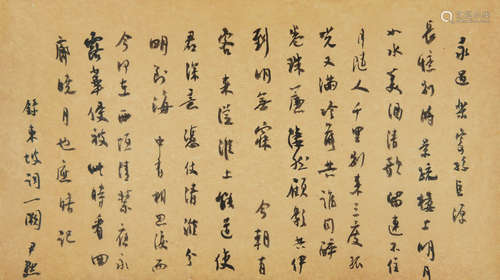 永遇樂寄孫巨源
長憶別時景疏樓上明月
如水美酒清歌留連不住
月隨人千里別來三度孤
光又滿冷落共誰同醉
卷珠簾淒然顧影共伊
到明無寐 今朝有
客來從濉上能道使
君深意憑仗清淮分
明到海 中有相思淚而
今何在西垣清禁夜永
露華侵被此時看回
廊曉月也應暗記
錄東坡詞一闋 尹默